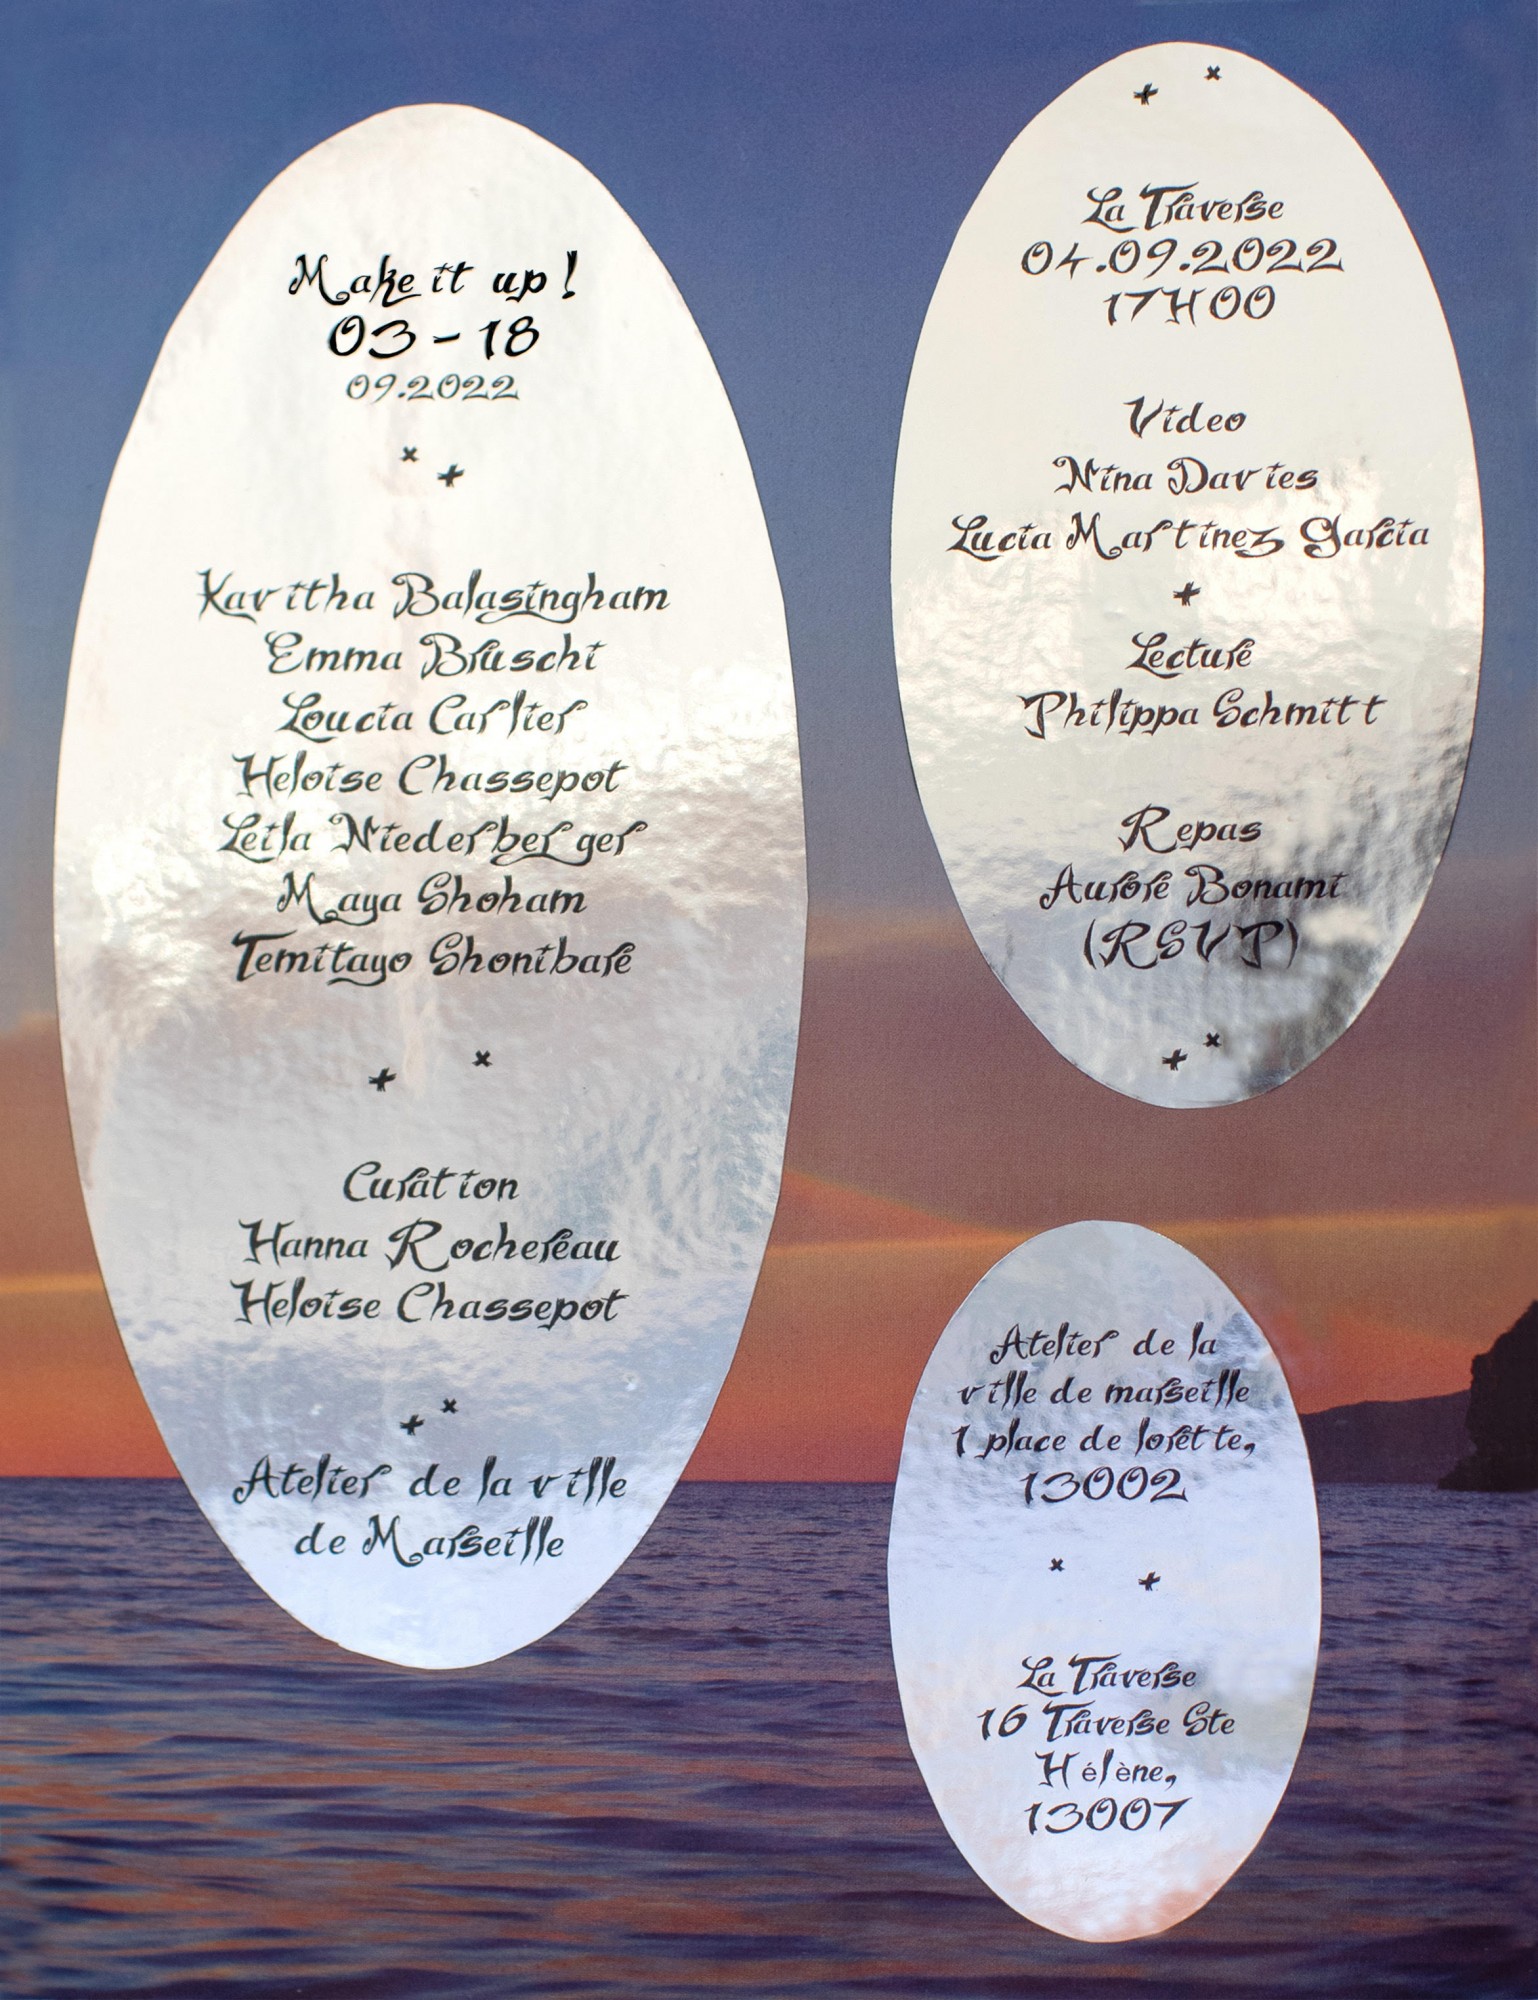 Make it up!
03 - 18
09.2022
Kavitha Balasingham
Emma Bruschi
Loucia Carlier
Heloise Chassepot
Leila Niederberger
Maya Shoham
Temitayo Shonibare
Curation
Hanna Rochereau
Heloise Chassepot
Atelier de la ville
de Marseille
La Traverse
04.09.2022
17H00
Video
Nina Davies
Lucia Martinez Garcia
+
Lecture
Philippa Schmitt
Repas
Aurore Bonami
(RSVP)
Atelier de la
ville de marseille
1 place de lorette,
13002
La Traverse
16 Traverse Ste
Hélène,
13007